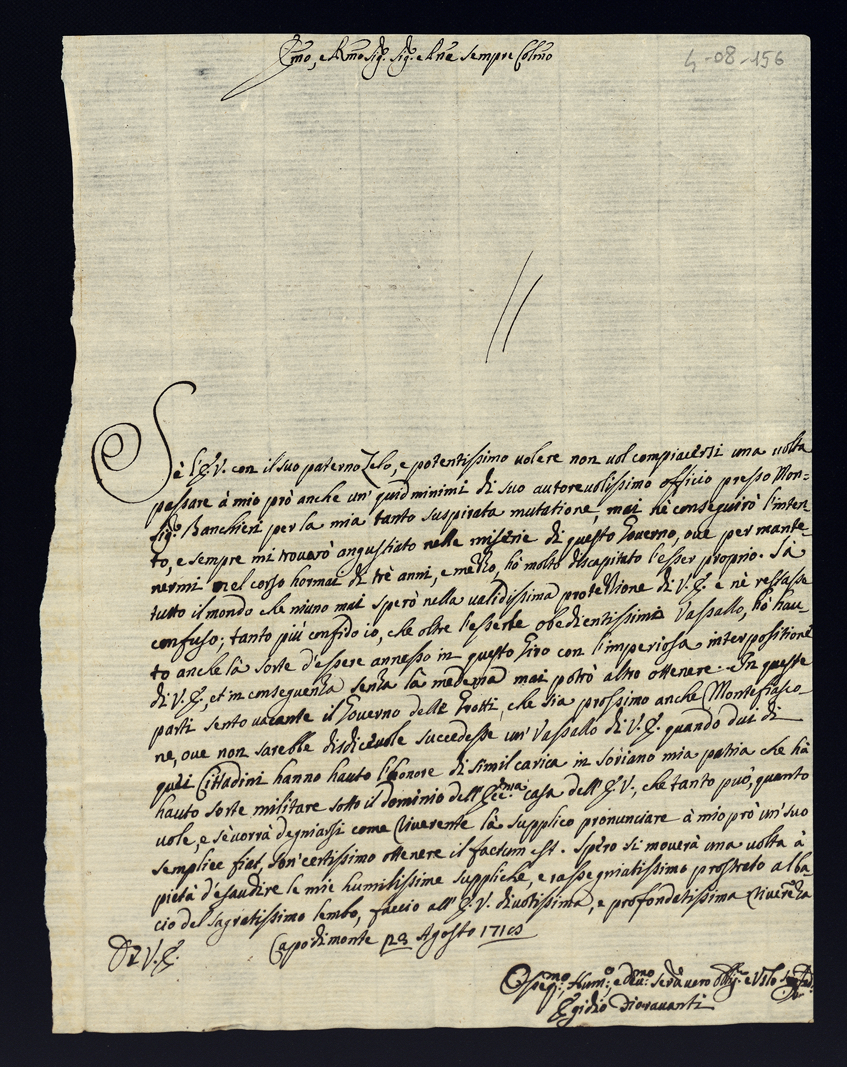 Emo, e Rmo Sig.r Sig.r e Pne sempre Colmo
4-08-156
Sè l'E.V. con il suo paterno zelo, e potentissimo volere non vol compiacersi una volta
passare à mio prò anche un' quid minimi di suo autorevolissimo officio presso Mon-
Sig.r Banchieri per la mia tanto suspirata mutatione, mai nè conseguirò l'inten
to, e sempre mi trovarò angustiato nelle miserie di questo Governo, ove per mante-
nermi nel corso hormai di trè anni, e mezzo, hò molto discapitato l'esser proprio. Sà
tutto il mondo che niuno mai sperò nella validissima protettione di V.E. e nè restasse
confuso; tanto più confido io, che oltre l'esserle obedientissimo Vassallo, hò hau-
to anche là sorte d'essere annesso in questo Giro con l'imperiosa interpositione
di V.E., et in conseguenza senza là medema mai potrò altro ottenere. In queste
parti sento vacante il Governo delle Grotti, che sia prossimo anche Montefiasco-
ne, ove non sarebbe disdicevole succedesse un' Vassallo di V.E. quando dui di
quei Cittadini hanno hauto l'honore di simil carica in Soriano mia patria che hà
hauto sorte militare sotto il dominio dell'Ecc.ma casa dell'E.V., che tanto può, quanto
vole, e sè vorrà degniarsi come riverente là supplico pronunciare à mio prò un' suo
semplice fiat, son' certissimo ottenere il factum est. Spero si moverà una volta à
pietà d'esaudire le mie humilissime suppliche, e rassegniatissimo prostrato al ba-
cio del sagratissimo lembo, faccio all'E.V. divotissima, e profondatissima riverenza
Di V.E. Capodimonte 28 Agosto 1710
Osseq.mo, Hum.o, e dev.mo serv.e vero
Egidio Fioravanti